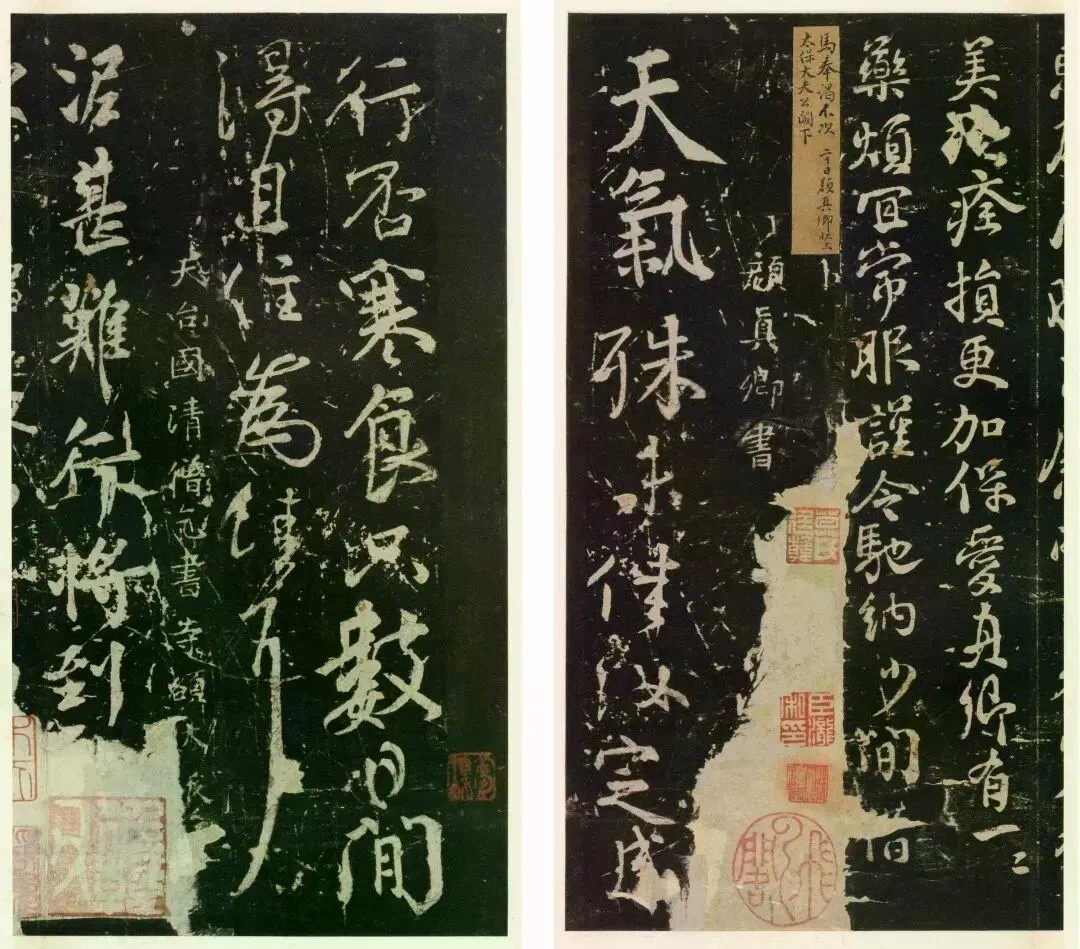 美疹痊損更加保愛真卿有一二
藥煩宜常服謹令馳納少間
馬奉謁不次 二十日顏真卿狀上
太保大夫公閣下
顏真卿書
天氣殊未佳汝定成
行否寒食只數日間
得且住為佳耳
天台國清僧 書寺額大
泥甚難行將到